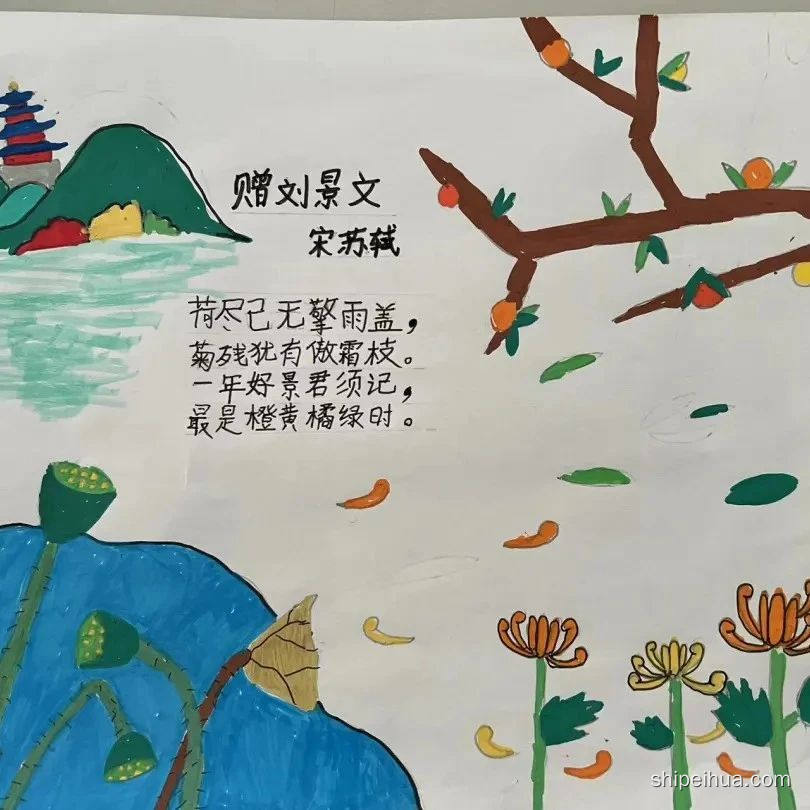 赠刘景文
宋苏轼
荷尽已无擎雨盖，
菊残犹有傲霜枝。
一年好景君须记，
最是橙黄橘绿时。
shipeihua.com